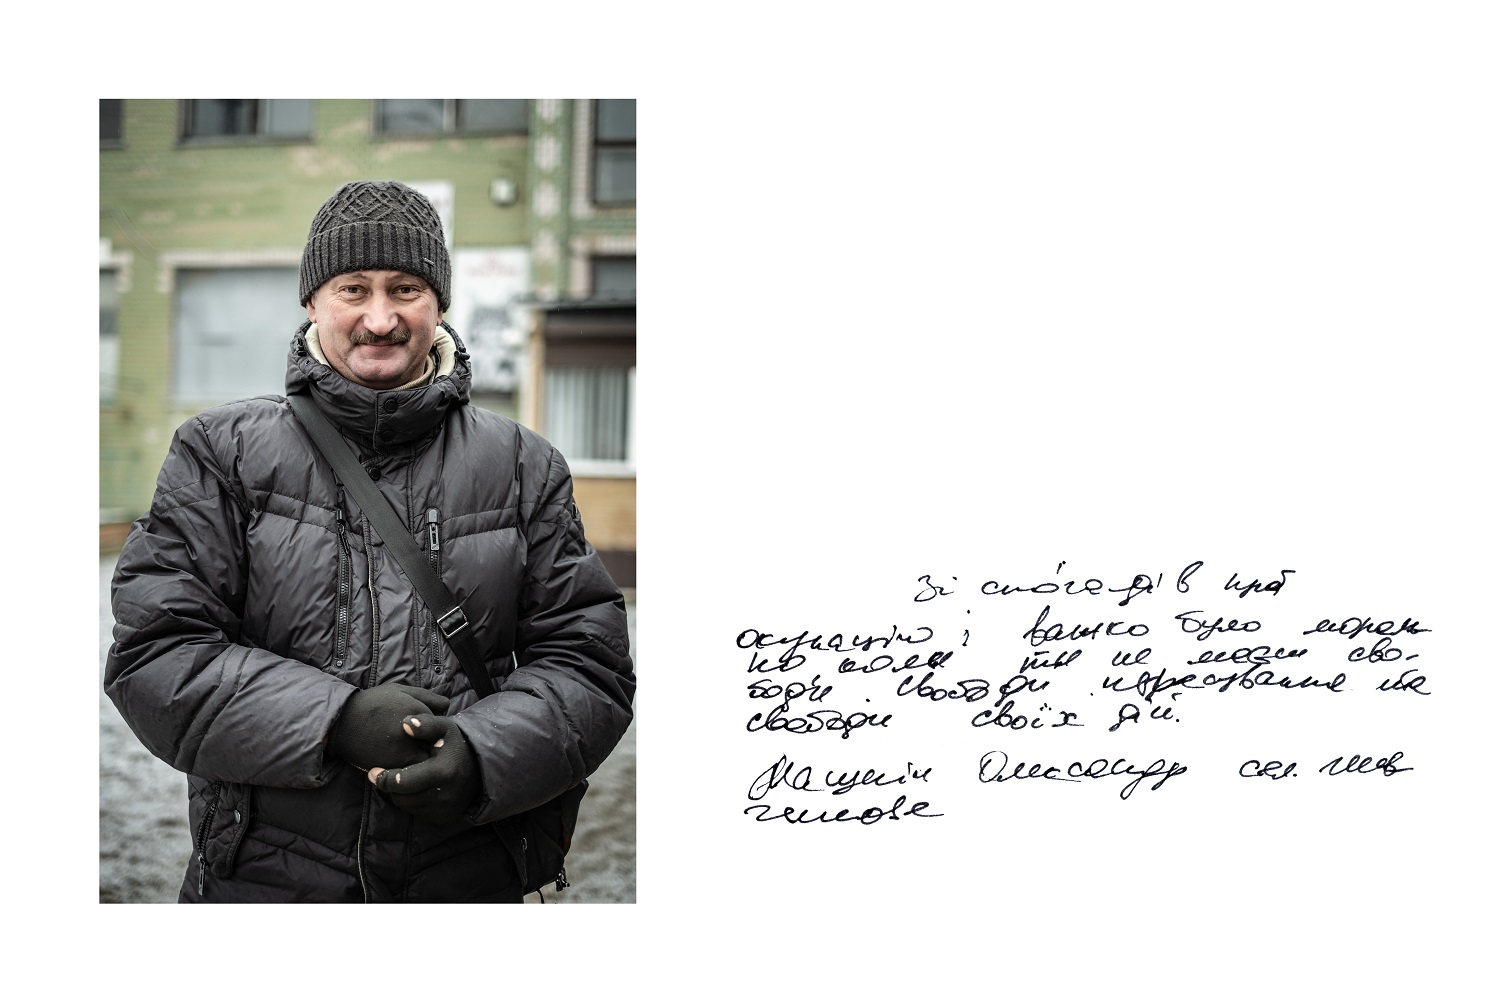 Зі спогадів про
окупацію і важко було мораль
но коли ти не маєш сво-
боди. Свободи пересування та
свободи своїх дій.
Мацукін Олександр сел. Шев
ченкове